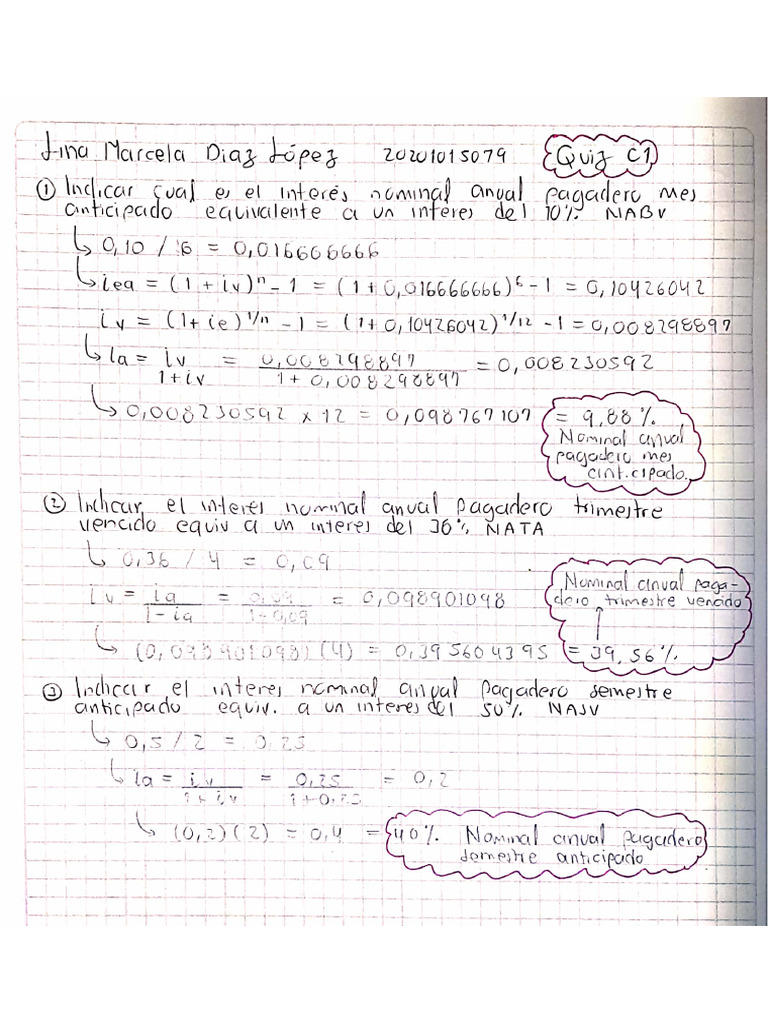 Lina Marcela Diaz López 20201015079 Quiz C1
① Indicar cual es el interés nominal anual pagadero mes
anticipado equivalente a un interes del 10% NABV
↳ 0,10 / 6 = 0,016666666
↳ iea = (1 + iv)ⁿ - 1 = (1 + 0,016666666)⁶ - 1 = 0,10426042
iv = (1+ie)^1/n - 1 = (1 + 0,10426042)^1/12 - 1 = 0,008298897
↳ ia = iv / 1+iv = 0,008298897 / 1 + 0,008298897 = 0,008230592
↳ 0,008230592 x 12 = 0,098767107 = 9,88%.
Nominal anual
pagadero mes
anticipado.
② Indicar el interes nominal anual pagadero trimestre
vencido equiv a un interes del 36% NATA
↳ 0,36 / 4 = 0,09
iv = ia / 1-ia = 0,09 / 1-0,09 = 0,098901098
Nominal anual paga-
dero trimestre vencido
↳ (0,098901098)(4) = 0,395604395 = 39,56%.
③ Indicar el interes nominal anual pagadero semestre
anticipado equiv. a un interes del 50% NASV
↳ 0,5 / 2 = 0,25
↳ ia = iv / 1+iv = 0,25 / 1+0,25 = 0,2
↳ (0,2)(2) = 0,4 = 40%. Nominal anual pagadero
semestre anticipado